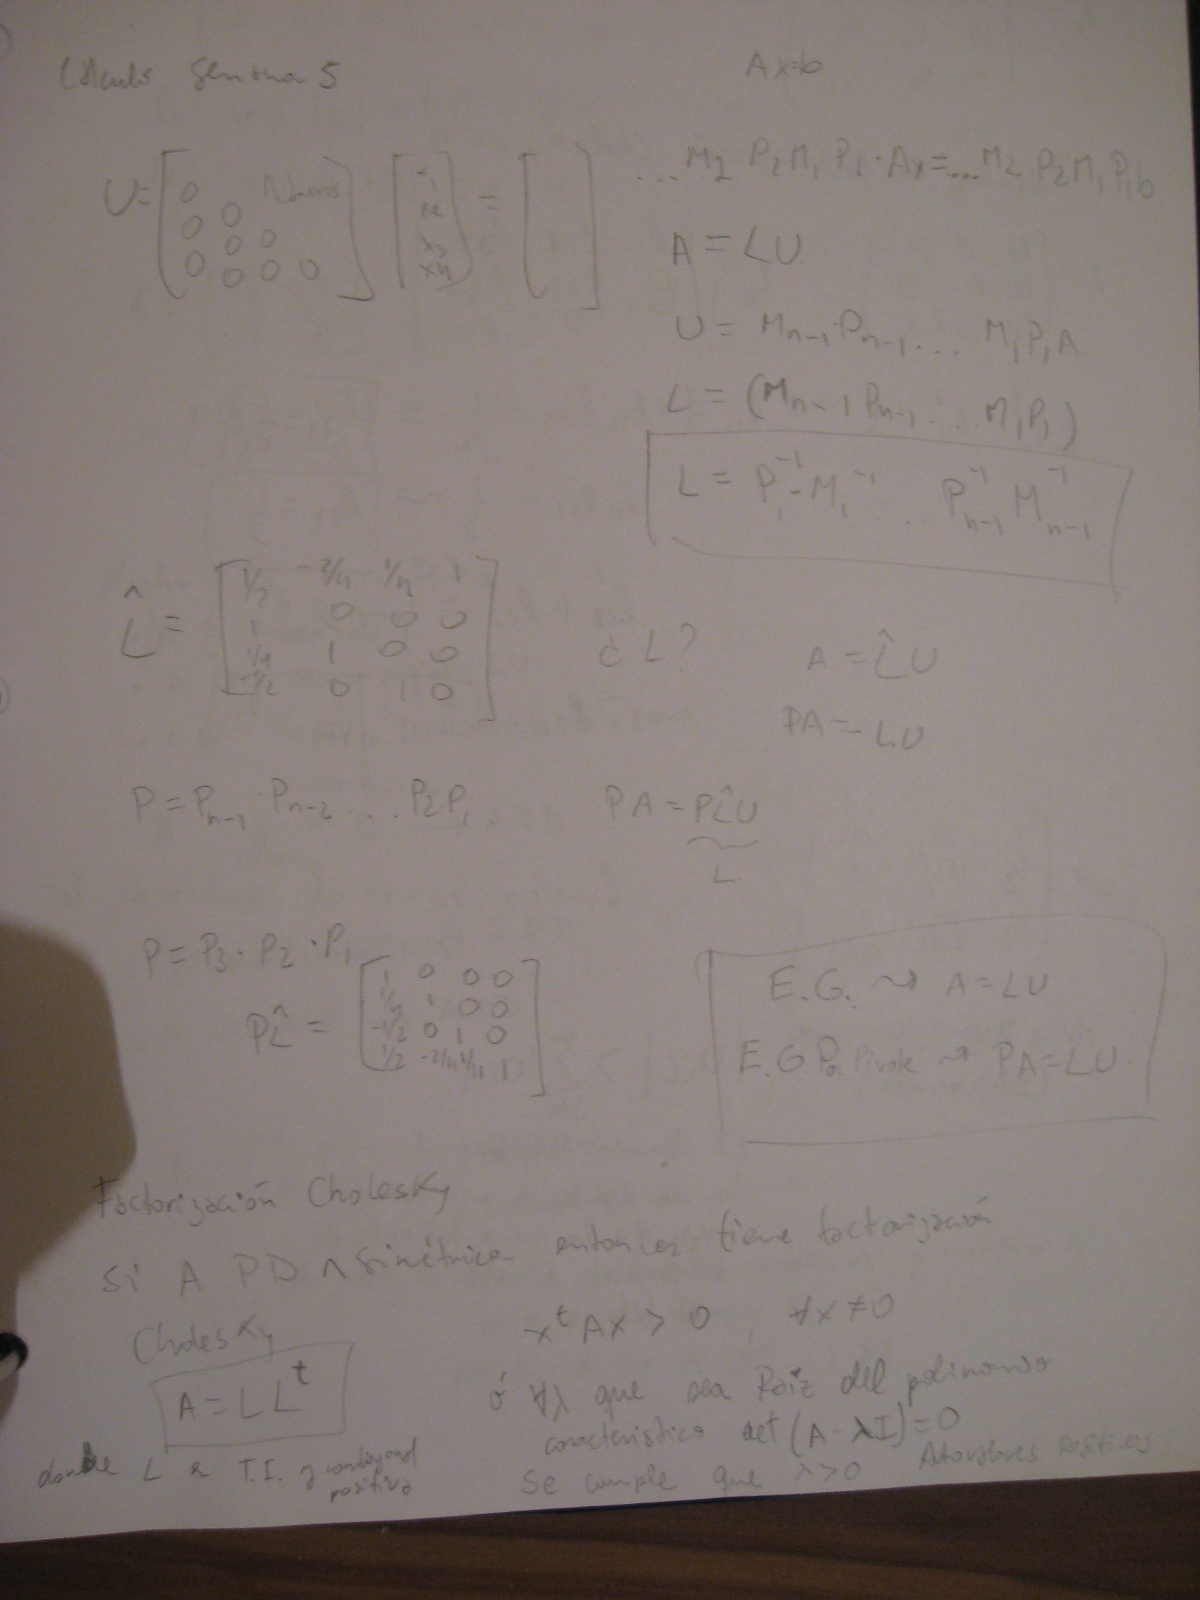 Cálculo Semana 5
Ax=b
U= [ 0 Números
0 0
0 0 0
0 0 0 0 ] [ x1 x2 x3 x4 ] = [ ]
...M2 P2 M1 P1·Ax=...M2 P2 M1 P1b
A = LU
U = Mn-1·Pn-1... M1P1A
L = (Mn-1 Pn-1... M1P1)
L = P1^-1 - M1^-1 .. Pn-1^-1 Mn-1^-1
L̂ = [ 1/2 -2/11 1/11 1
1 0 0 0
1/4 1 0 0
-1/2 0 1 0 ]
¿L?
A = L̂U
PA = LU
P = Pn-1·Pn-2... P2P1
PA = PL̂U
L
P = P3·P2·P1
PL̂ = [ 1 0 0 0
1/4 1 0 0
-1/2 0 1 0
1/2 -2/11 1/11 1 ]
E.G. ⇝ A=LU
E.G Pivote ⇝ PA=LU
Factorización Cholesky
Si A PD ∧ simétrica entonces tiene factorización
Cholesky
A=LL^t
donde L T.I. y
positiva
x^t Ax > 0, ∀x≠0
ó ∀λ que sea Raiz del polinomio
caracteristico det (A-λI)=0
Se cumple que λ>0 Autovalores positivos